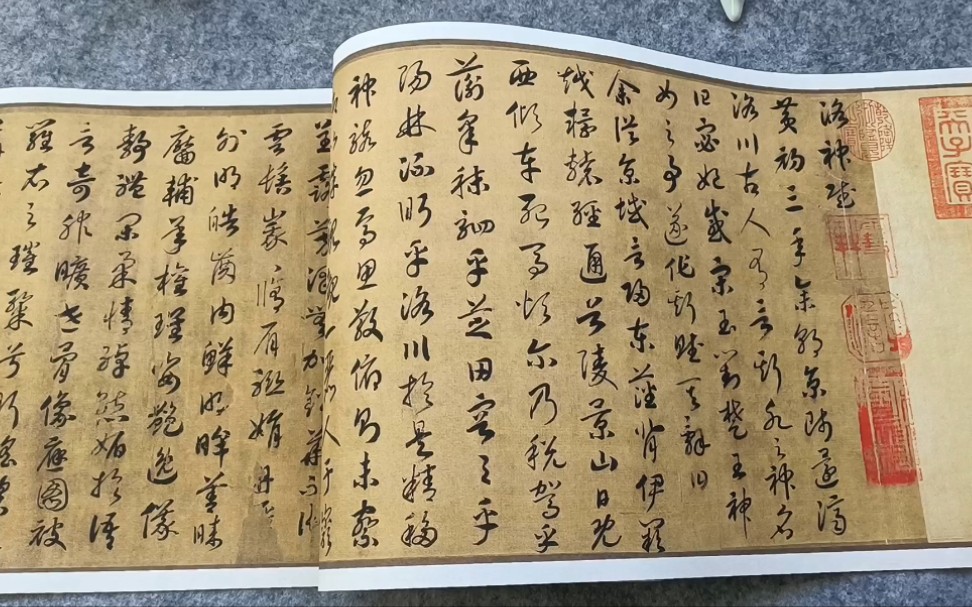 洛神賦
黄初三年余朝京師還濟
洛川古人有言斯水之神名
曰宓妃感宋玉對楚王神
女之事遂作斯賦其辭曰
余從京城言歸東藩背伊闕
越轘轅經通谷陵景山日既
西傾車殆馬煩爾乃税駕乎
蘅皋秣駟乎芝田容與乎
陽林流眄乎洛川於是精移
神駭忽焉思散俯則未察
芳澤無加鉛華不御
雲髻峩峩脩眉聯娟丹
外朗皓齒内鮮明眸善睞
靨輔承權瓌姿艷逸儀
靜體閑柔情綽態媚於語
言奇服曠世骨像應圖披
羅衣之璀粲兮珥瑤碧